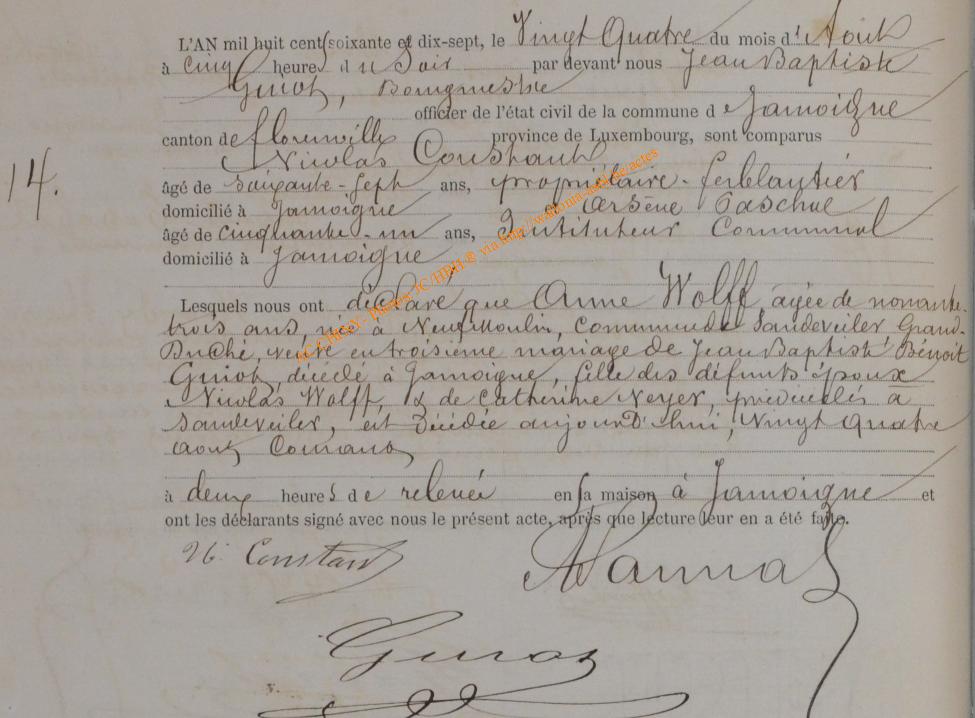 L'AN mil huit cent soixante et dix-sept, le Vingt Quatre du mois d'Aout
à Cinq heures du Soir par devant nous Jean Baptiste
Guiot, Bourgmestre
officier de l'état civil de la commune de Jamoigne
canton de florenville province de Luxembourg, sont comparus
Nicolas Constant
14.
âgé de soixante-sept ans, propriétaire-ferblantier
domicilié à Jamoigne & Arsène
âgé de cinquante-un ans, Instituteur Communal
domicilié à Jamoigne
Lesquels nous ont déclaré que Anne Wolff agée de nonante-
trois ans, née à Neufmoulin, Commune de Sandeveiler Grand-
Duché, veuve en troisième mariage de Jean Baptiste Bénoit
Guiot, décédé à Jamoigne, fille des défunts époux
Nicolas Wolff & de Catherine Neyer, prédécédés à
Sandeveiler, est décédée aujourd'hui, Vingt quatre
aout Courant
à deux heures de relevée en sa maison à Jamoigne et
ont les déclarants signé avec nous le présent acte, après que lecture leur en a été faite.
N. Constant
Guiot